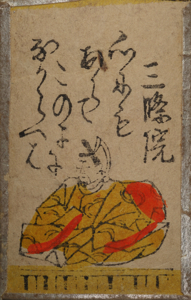 三條院
心にも
あらて
このよに
なからへは